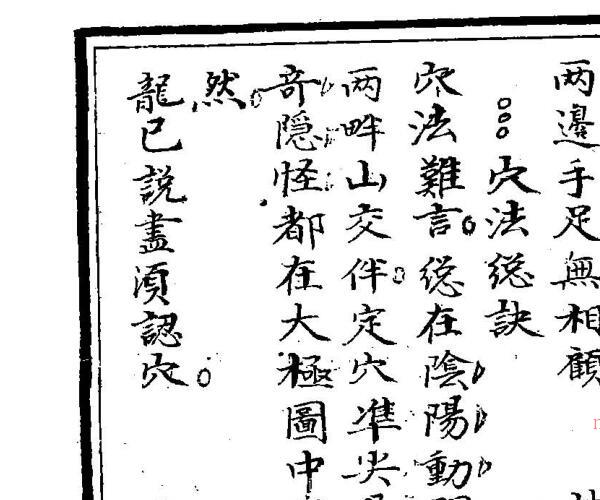 两邊手足無相顧
穴法縂訣
穴法難言縂在陰陽動
两畔山交伴定穴準尖
竒隱怪都在大極圖中
然
龍已説盡須認穴